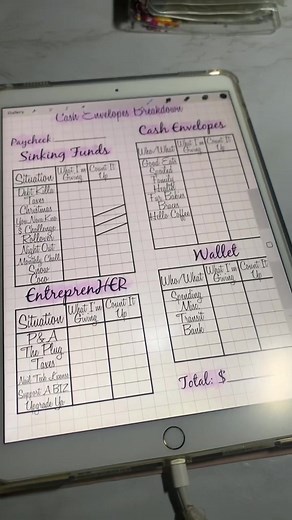 Cash Envelopes Breakdown
Paycheck
Sinking Funds
Situation What I'm Giving Count It Up
Debt Killa
Taxes
Christmas
You Never Know
$ Challenge
Rollover
Night Out
Monthly Chall
Snow
Coin
EntreprenHER
Situation What I'm Giving Count It Up
P & A
The Plug
Taxes
Support A BIZ
Upgrade Yo
Cash Envelopes
Who/What What I'm Giving Count It Up
Good Eats
Family
Health
Fur Babies
Braces
Hello Coffee
Wallet
Who/What What I'm Giving Count It Up
Spending
Misc
Transit
Bank
Total: $